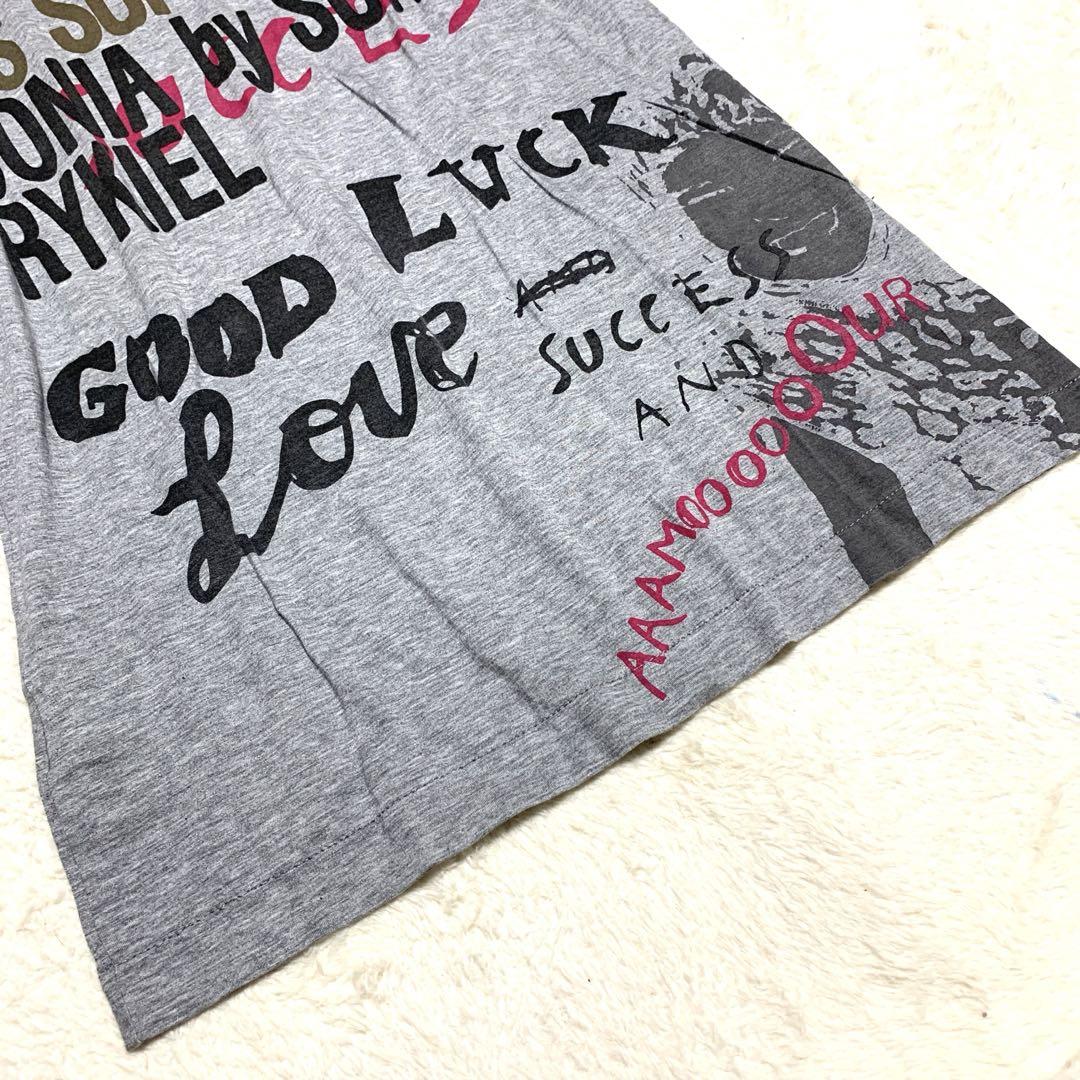 SONIA by SON
RYKIEL
GOOD LUCK
Love AND SUCCESS
AND
AAAMOOOOOOOUR